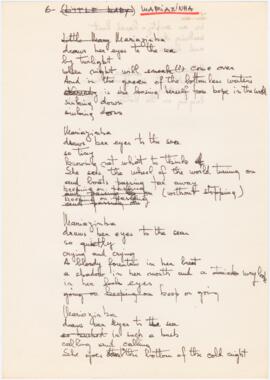 6- (LITTLE BABY) MARIAZINHA
Little Mary Mariazinha
draws her eyes to the sea
by twilight
when night until come over
And in the of the bottomless waters
is she losing herself too hope is the
sinking down
sinking down
Mariazinha
draws her eyes to the sea
so tiny
knowing not what to think
She sets the wheel of the world turning on
and boats passing far away
keeping on passing (without stopping)
keeping on passing
and passing
Mariazinha
draws her eyes to the sea
so quietly
crying and crying
A bloody fountain in her heart
a shadow in her mouth and a
in her eyes
going on keeping on keep on going
Mariazinha
draws her eyes to the sea
in such a
calling and calling
She goes the bottom of the cold night